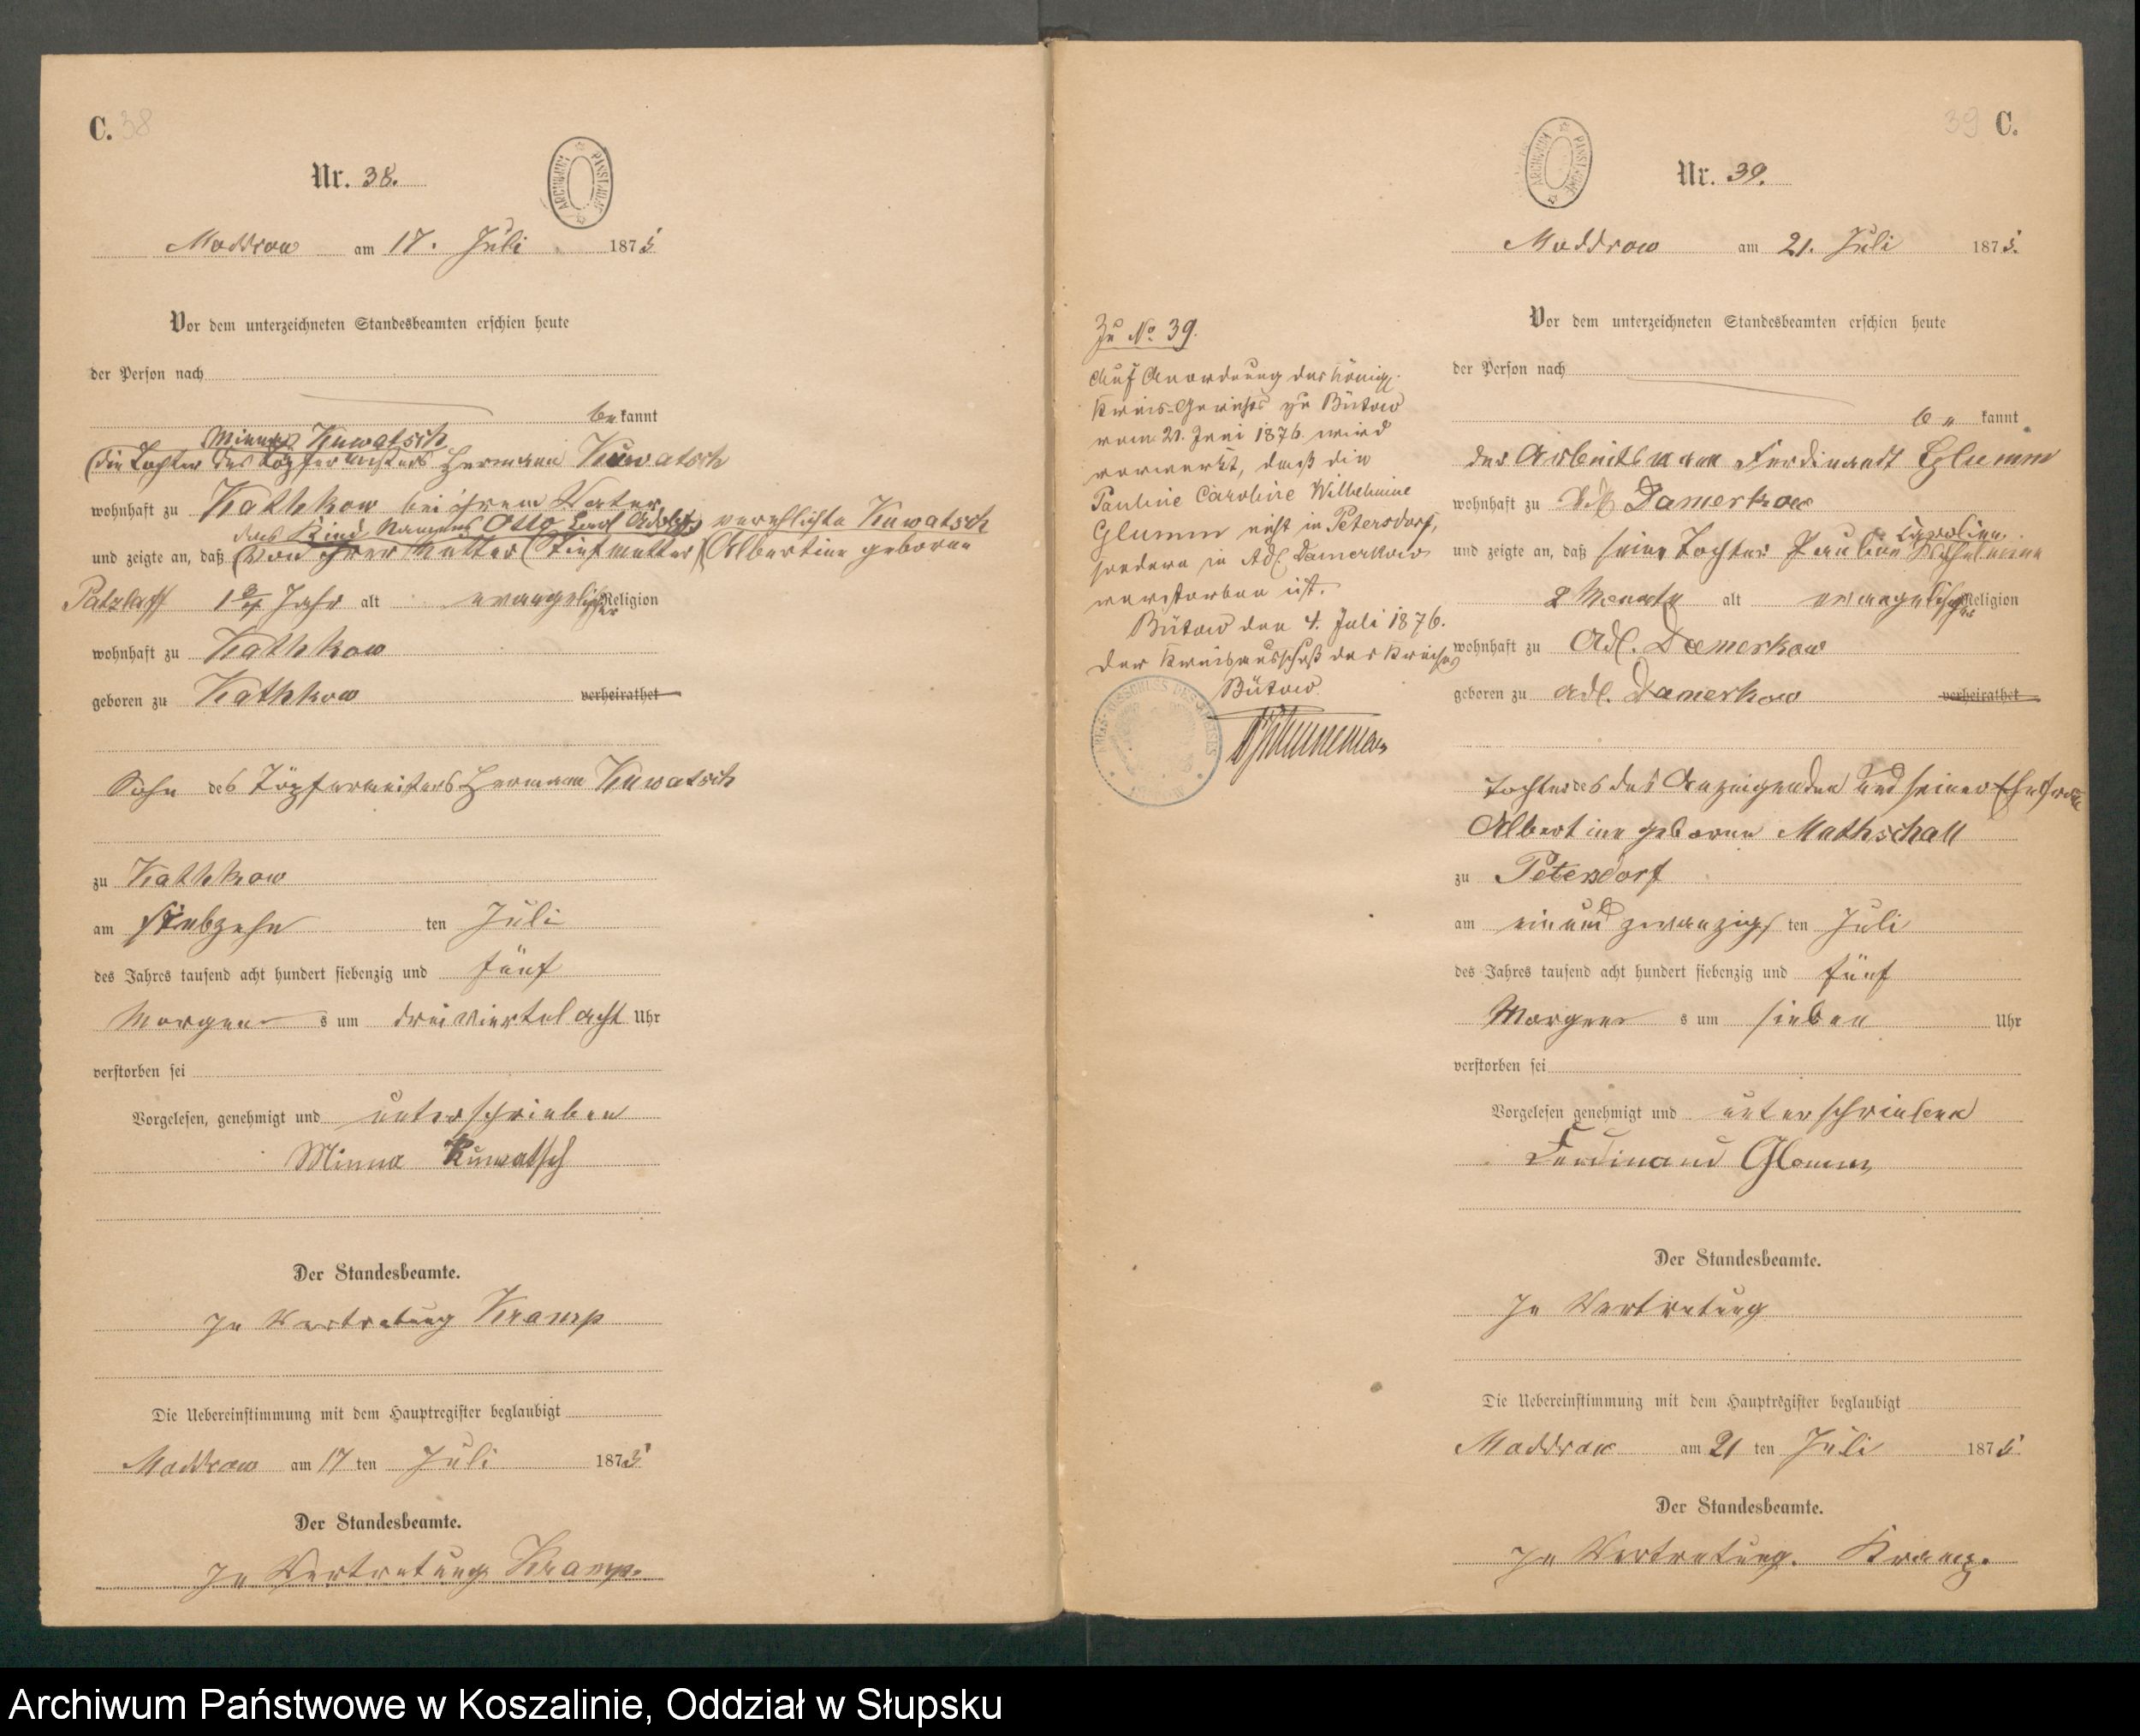 C. 38
Nr. 38.
ARCHIWUM PAŃSTWOWE
Moddrow am 17. Juli 1875
Vor dem unterzeichneten Standesbeamten erschien heute
der Person nach
be kannt
Minna Kuwatsch
(die Tochter des Töpfermeisters Hermann Kuwatsch
wohnhaft zu Kathkow bei ihrem Vater
das Kind Namens Otto Carl Adolph verehlichte Kuwatsch
und zeigte an, daß (von ihrer Mutter (Stiefmutter) (Albertine geborne
Patzlaff 1 3/4 Jahr alt evangelischer Religion
wohnhaft zu Kathkow
geboren zu Kathkow verheirathet
Sohn des Töpfermeisters Hermann Kuwatsch
zu Kathkow
am siebzehn ten Juli
des Jahres tausend acht hundert siebenzig und fünf
Morgen s um drei viertel acht Uhr
verstorben sei
Vorgelesen, genehmigt und unterschrieben
Minna Kuwatsch
Der Standesbeamte.
In Vertretung Kramp
Die Uebereinstimmung mit dem Hauptregister beglaubigt
Moddrow am 17 ten Juli 1875
Der Standesbeamte.
In Vertretung Kramp.
39 C.
Nr. 39.
ARCHIWUM PAŃSTWOWE
Moddrow am 21. Juli 1875.
Vor dem unterzeichneten Standesbeamten erschien heute
der Person nach
be kannt
der Arbeitsmann Ferdinandt Glumm
wohnhaft zu Adl. Damerkow
Caroline
und zeigte an, daß seine Tochter Pauline Wilhelmine
2 Monate alt evangelischer Religion
wohnhaft zu Adl. Damerkow
geboren zu adl. Damerkow verheirathet
Tochter des des Anzeigenden und seiner Ehefrau
Albertine geborne Mathschall
zu Petersdorf
am ein und zwanzigs ten Juli
des Jahres tausend acht hundert siebenzig und fünf
Morgen s um sieben Uhr
verstorben sei
Vorgelesen genehmigt und unterschrieben
Ferdinand Glumm
Der Standesbeamte.
In Vertretung
Die Uebereinstimmung mit dem Hauptregister beglaubigt
Moddrow am 21 ten Juli 1875
Der Standesbeamte.
In Vertretung. Kramp.
Zu No 39.
Auf Anordnung des Königl.
Kreis-Gerichts zu Bütow
vom 21. Juni 1876 wird
vermerkt, daß die
Pauline Caroline Wilhelmine
Glumm nicht in Petersdorf,
sondern in Adl. Damerkow
verstorben ist.
Bütow den 4. Juli 1876.
Der Kreisausschuß des Kreises
Bütow
Archiwum Państwowe w Koszalinie, Oddział w Słupsku